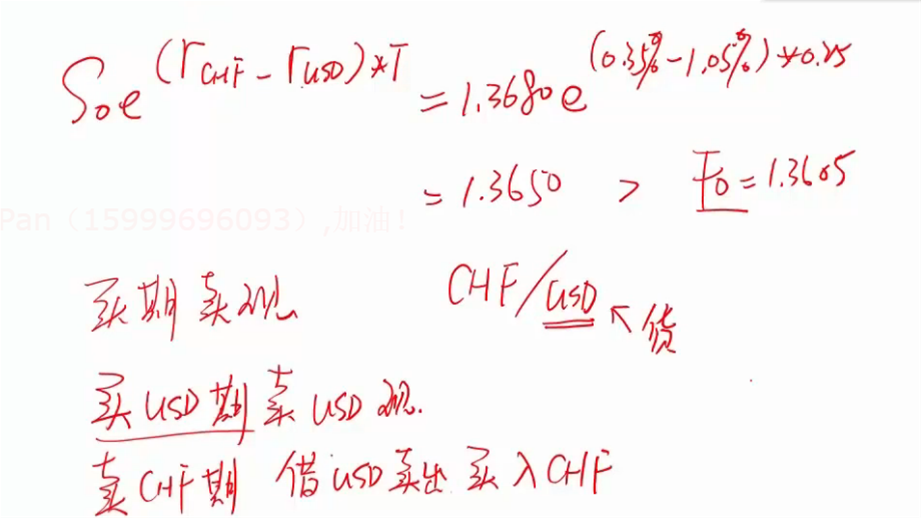 S₀e^(r_CHF - r_USD)*T = 1.3680e^(0.35% - 1.05%)*0.25
= 1.3650 > F₀ = 1.3605
Pan（15999696093）,加油！
买期卖现 CHF/USD ↖ 货
买USD期 卖USD现.
卖CHF期 借USD卖出 买入CHF